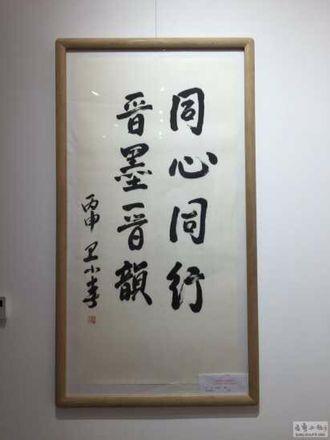 同心同行
晋墨晋韻
丙申 卫小春